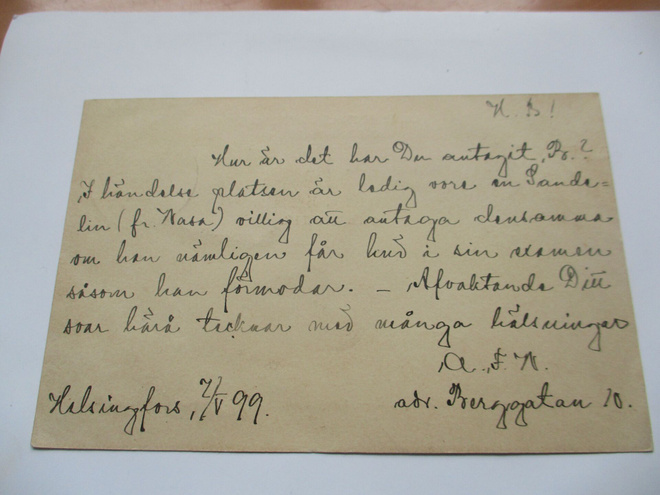 H. B!
Hur är det har Du antagit, Br.?
I händelse platsen är ledig vore en Sande-
lin (fr. Wasa) villig att antaga densamma
om han nämligen får hud i sin examen
såsom han förmodar. – Afvaktande Ditt
svar härå tecknar med många hälsningar
A. F. W.
Helsingfors, 7/V 99. adr. Berggatan 10.